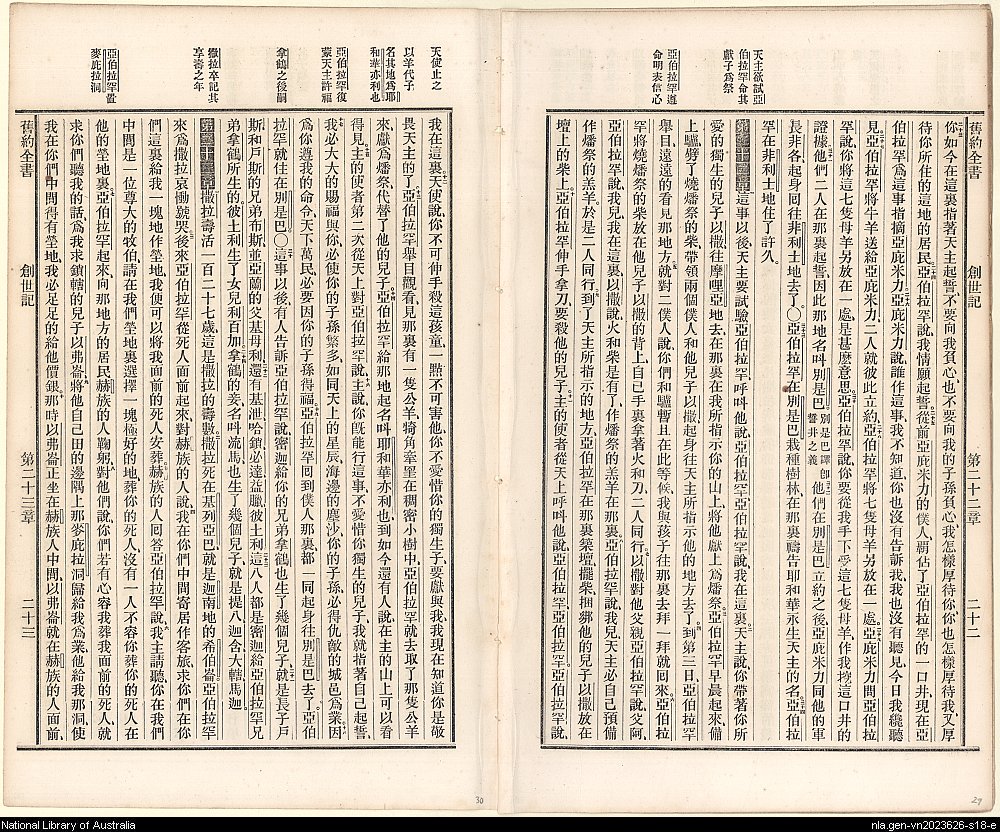 舊約全書 創世記 第二十二章 二十二
你如今在這裏指著天主起誓、不要向我負心、也不要向我的子孫負心、我怎樣厚待你、你也怎樣厚待我、又厚
待你所住的這地的居民、亞伯拉罕說、我情願起誓、從前亞庇米力的僕人、霸佔了亞伯拉罕的一口井、現在亞
伯拉罕爲這事指摘亞庇米力、亞庇米力說、誰作這事、我不知道、你也沒有告訴我、我也沒有聽見、今日我纔聽
見、亞伯拉罕將牛羊送給亞庇米力、二人就彼此立約、亞伯拉罕將七隻母羊另放在一處、亞庇米力問亞伯拉
罕說、你將這七隻母羊另放在一處、是甚麼意思、亞伯拉罕說、你要從我手下受這七隻母羊、作我挖這口井的
證據、他們二人在那裏起誓、因此那地名叫別是巴、別是巴譯卽誓井之義他們在別是巴立約之後、亞庇米力同他的軍
長非各起身回往非利士地去了、〇亞伯拉罕在別是巴栽種樹林、在那裏禱告耶和華永生天主的名、亞伯拉
罕在非利士地住了許久、
天主欲試亞
伯拉罕命其
獻子爲祭
第二十二章這事以後、天主要試驗亞伯拉罕、呼叫他說、亞伯拉罕、亞伯拉罕說、我在這裏、天主說、你帶著你所
愛的獨生的兒子以撒、往摩哩亞地去、在那裏在我所指示你的山上、將他獻上爲燔祭、亞伯拉罕早晨起來、備
上驢、劈了燒燔祭的柴、帶領兩個僕人和他兒子以撒、起身往天主所指示他的地方去了、到第三日、亞伯拉罕
亞伯拉罕遵
命明表信心
舉目、遠遠的看見那地方、就對二僕人說、你們和驢暫且在此等候、我與孩子往那裏去拜一拜就回來、亞伯拉
罕將燒燔祭的柴、放在他兒子以撒的背上、自己手裏拿著火和刀、二人同行、以撒對他父親亞伯拉罕說、父阿、
亞伯拉罕說、我兒、我在這裏、以撒說、火和柴是有了、作燔祭的羔羊在那裏、亞伯拉罕說、我兒、天主必自己預備
作燔祭的羔羊、於是二人同行、到了天主所指示的地方、亞伯拉罕在那裏築壇、擺柴、捆綁他的兒子以撒、放在
壇上的柴上、亞伯拉罕伸手拿刀、要殺他的兒子、主的使者從天上呼叫他說、亞伯拉罕、亞伯拉罕、亞伯拉罕說、
29
天使止之
我在這裏、天使說、你不可伸手殺這孩童、一點不可害他、你不愛惜你的獨生子、要獻與我、我現在知道你是敬
以羊代子
名其地爲耶
和華亦利也
畏天主的了、亞伯拉罕舉目觀看、見那裏有一隻公羊、犄角牽罣在稠密小樹中、亞伯拉罕就去取了那隻公羊
來、獻爲燔祭、代替了他的兒子、亞伯拉罕給那地起名叫耶和華亦利也、到如今還有人說、在主的山上可以看
得見、主的使者第二次從天上對亞伯拉罕說、主說、你旣能行這事、不愛惜你獨生的兒子、我就指著自己起誓、
亞伯拉罕復
蒙天主許福
我必大大的賜福與你、必使你的子孫繁多、如同天上的星辰、海邊的塵沙、你的子孫必得仇敵的城邑爲業、因
爲你遵我的命令、天下萬民、必要因你的子孫得福、亞伯拉罕回到僕人那裏、都一同起身往別是巴去了、亞伯
拿鶴之後嗣
拉罕就住在別是巴、〇這事以後、有人告訴亞伯拉罕說、密迦給你的兄弟拿鶴也生了幾個兒子、就是長子戶
斯、和戶斯的兄弟布斯、並亞蘭的父基母利、還有基泄、哈鎖、必達、益臘、彼土利、這八人都是密迦給亞伯拉罕兄
弟拿鶴所生的、彼土利生了女兒利百加、拿鶴的妾名叫流馬、也生了幾個兒子、就是提八、迦含、大轄、馬迦、
撒拉卒記其
享壽之年
第二十三章撒拉壽活一百二十七歲、這是撒拉的壽數、撒拉死在基列亞巴、就是迦南地的希伯崙、亞伯拉罕
來爲撒拉哀慟號哭、後來亞伯拉罕從死人面前起來、對赫族的人說、我在你們中間寄居作客旅、求你們在你
們這裏給我一塊地作塋地、我便可以將我面前的死人安葬、赫族的人回答亞伯拉罕說、我主請聽、你在我們
中間是一位尊大的牧伯、請在我們塋地裏選擇一塊極好的地、葬你的死人、沒有一人不容你葬你的死人在
亞伯拉罕置
麥庇拉洞
他的塋地裏、亞伯拉罕起來、向那地方的居民赫族的人鞠躬、對他們說、你們若有心容我葬我面前的死人、就
求你們聽我的話、爲我求鎖轄的兒子以弗崙、將他自己田的邊隅上那麥庇拉洞歸給我爲業、他給我那洞、使
我在你們中間得有塋地、我必足足的給他價銀、那時以弗崙正坐在赫族人中間、以弗崙就在赫族的人面前、
舊約全書 創世記 第二十三章 二十三
30
National Library of Australia
nla.gen-vn2023626-s18-e